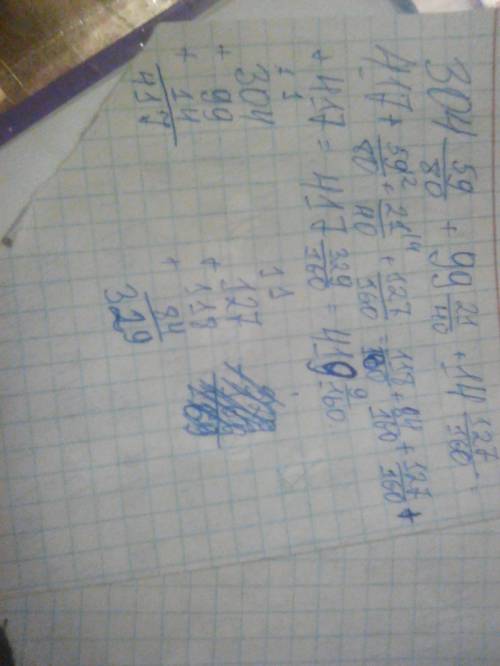 304 59/80 + 99 21/40 + 14 127/160 =
417 + 59²/80 + 21⁴/40 + 127/160 = 118/160 + 84/160 + 127/160 +
+ 417 = 417 + 329/160 = 419 9/160
1 1
304
+ 99
+ 14
417
1 1
127
+ 118
+ 84
329